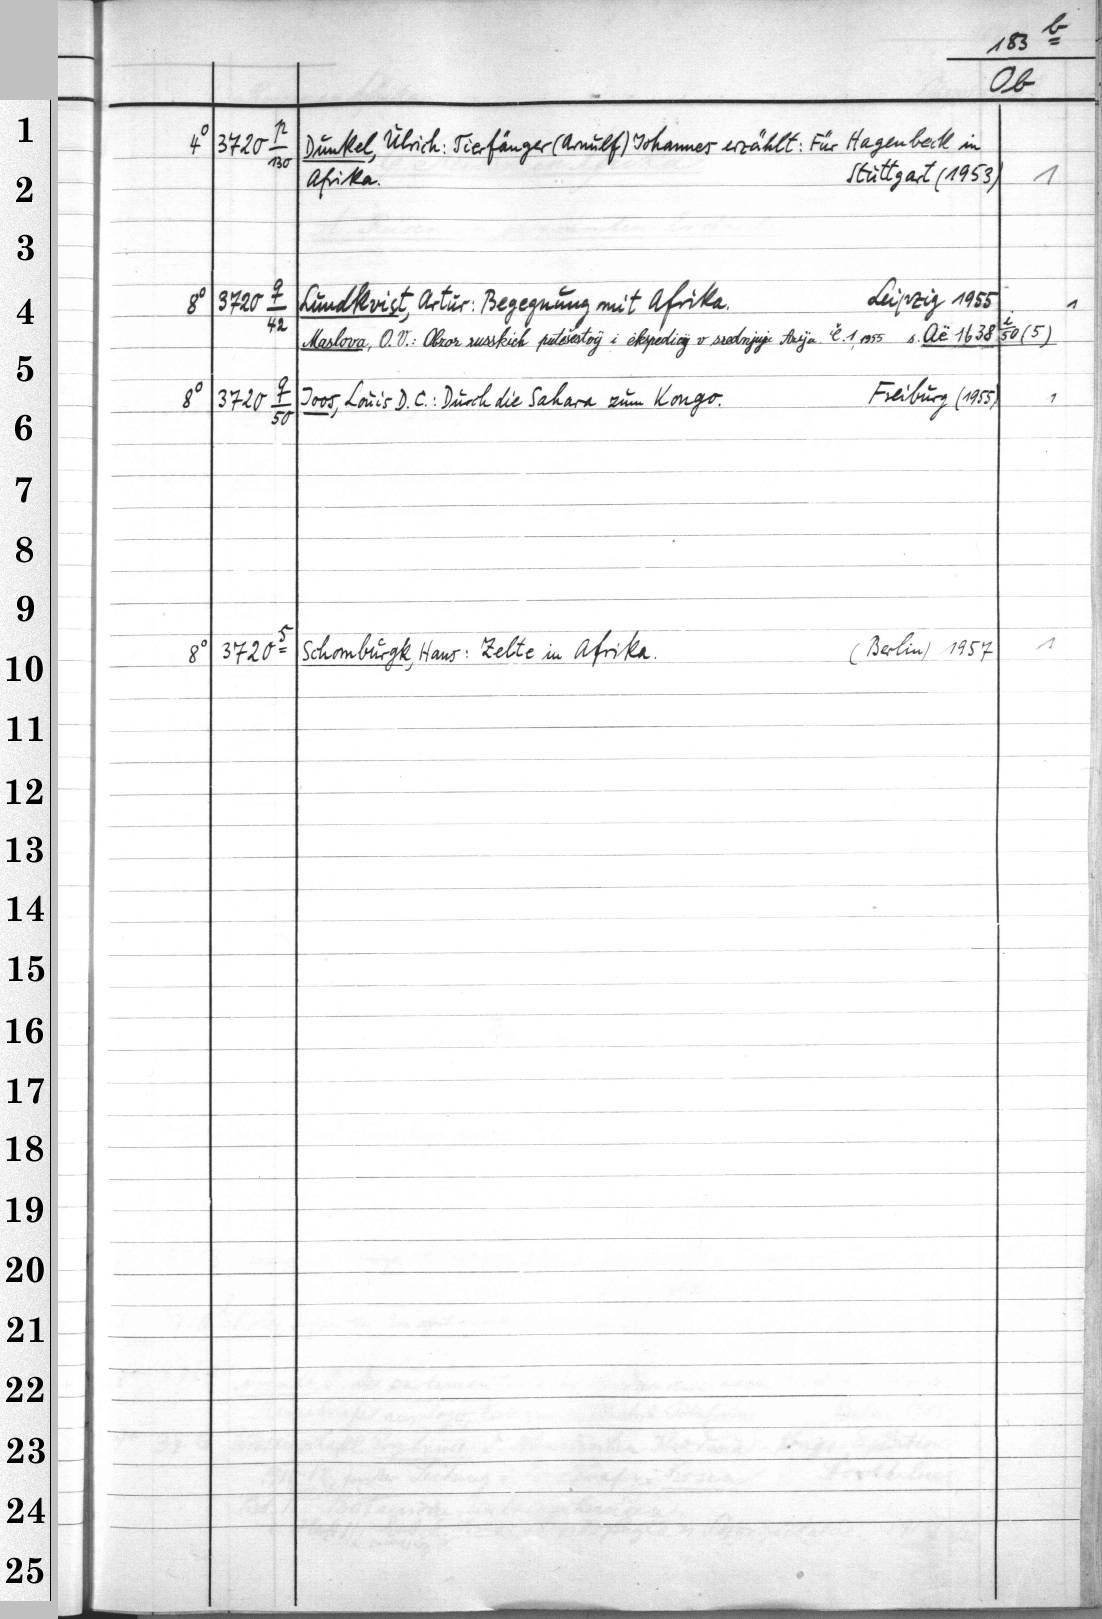 183 b
Ob
4° 3720 p/130 Dunkel, Ulrich: Tierfänger (Arnulf) Johannes erzählt: Für Hagenbeck in
Afrika. Stuttgart (1953) 1
8° 3720 q/42 Lundkvist, Artur: Begegnung mit Afrika. Leipzig 1955 1
Maslova, O. V.: Obzor russkich putešestvij i ėkspedicij v srednjuju Azija. Č. 1, 1955 s. Aë 1638 i/50 (5)
8° 3720 q/50 Joos, Louis D. C.: Durch die Sahara zum Kongo. Freiburg (1955) 1
8° 3720 5 Schomburgk, Hans: Zelte in Afrika. (Berlin) 1957 1
1
2
3
4
5
6
7
8
9
10
11
12
13
14
15
16
17
18
19
20
21
22
23
24
25